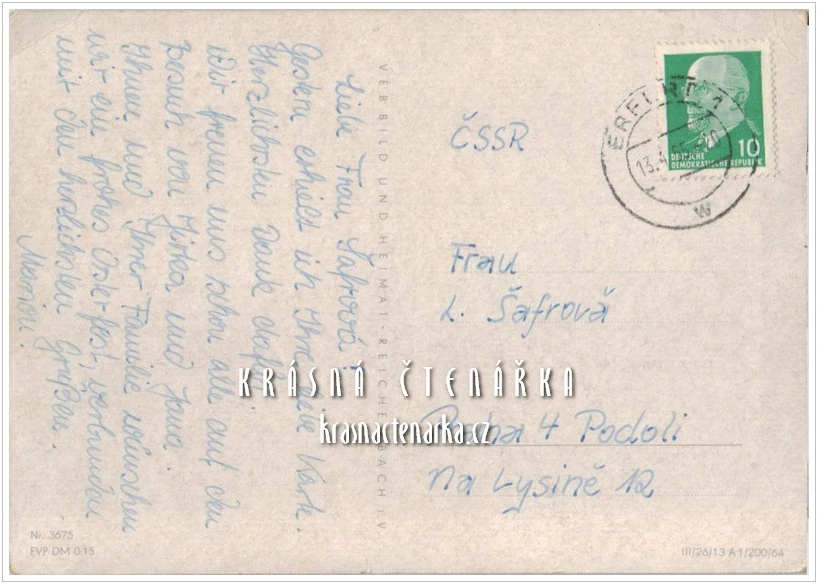 Liebe Frau Šafrová!
Gestern erhielt ich Ihre Karte.
Herzlichsten Dank dafür.
Wir freuen uns schon alle auf den
Besuch von Jirka und Jana
Ihnen und Ihrer Familie wünschen
wir ein frohes Osterfest, verbunden
mit den herzlichsten Grüßen.
VEB BILD UND HEIMAT · REICHENBACH I. V.
ERFURT 1
w
10
DEUTSCHE
DEMOKRATISCHE REPUBLIK
ČSSR
Frau
L. Šafrová
Praha 4 Podolí
Na Lysině 12
KRÁSNÁ ČTENÁŘKA
krasnactenarka.cz
Nr. 3675
EVP DM 0.15
III/26/13 A 1/200/64